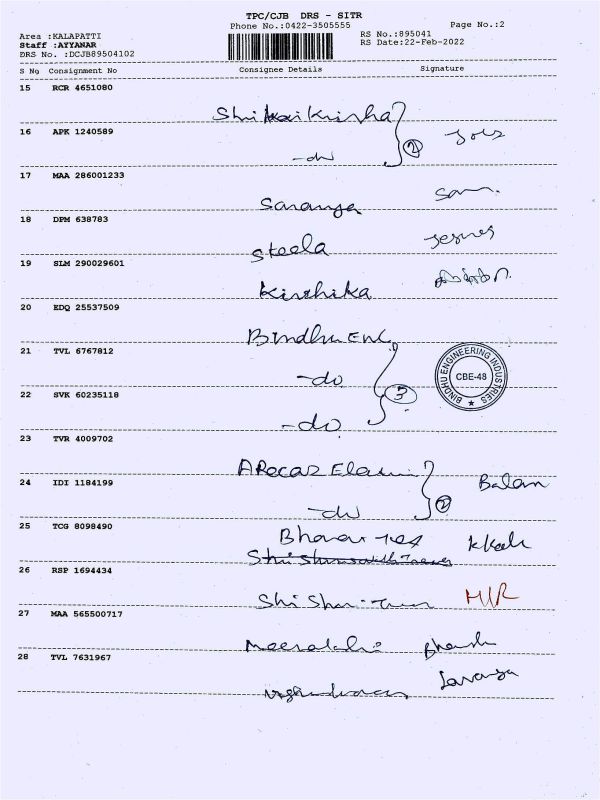 TPC/CJB DRS - SITR
Phone No.:0422-3505555
Page No.:2
Area :KALAPATTI
RS No.:895041
Staff :AYYANAR
RS Date:22-Feb-2022
DRS No. :DCJB89504102
S No Consignment No Consignee Details Signature
15 RCR 4651080
16 APK 1240589
-do
2
17 MAA 286001233
Saranya
18 DPM 638783
Steela
19 SLM 290029601
Kirthika
20 EDQ 25537509
Bindhu Eng
21 TVL 6767812
-do
BINDHU ENGINEERING INDUSTRIES
CBE-48
22 SVK 60235118
3
-do
23 TVR 4009702
24 IDI 1184199
Balan
-do
2
25 TCG 8098490
26 RSP 1694434
27 MAA 565500717
28 TVL 7631967
Lavanya